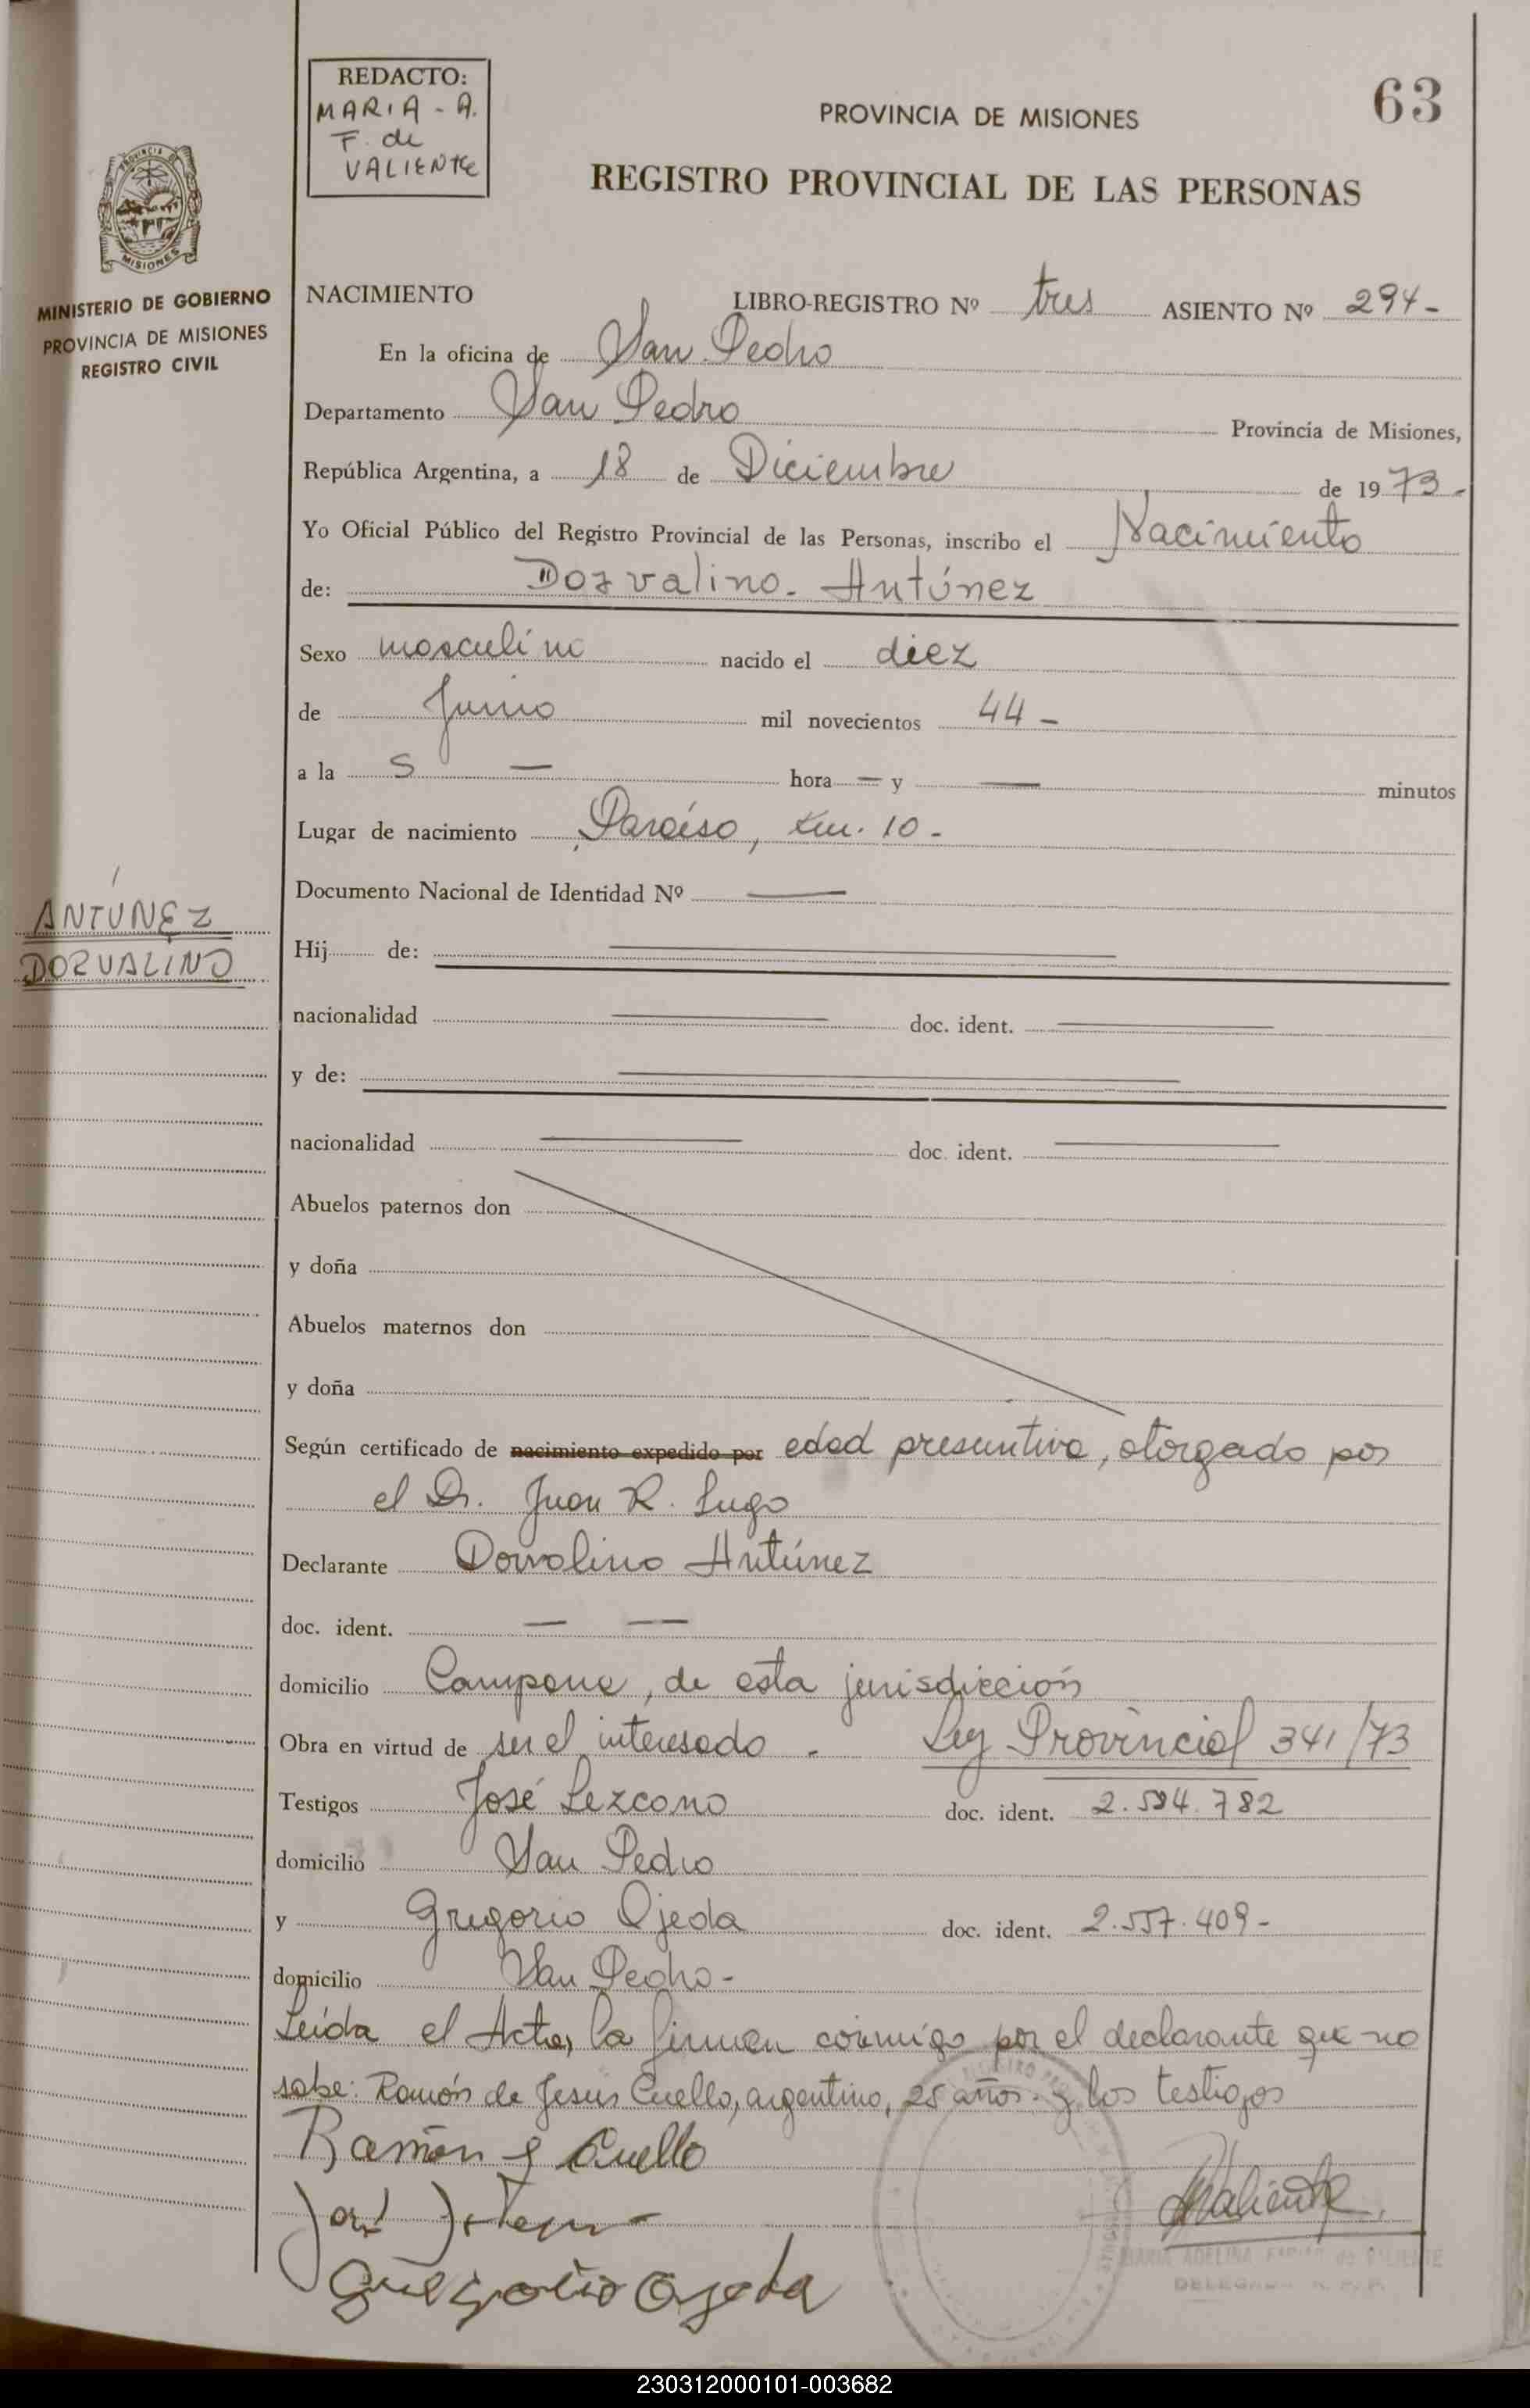 63
REDACTO:
MARIA - A.
F. de
VALIENTE
PROVINCIA DE MISIONES
REGISTRO PROVINCIAL DE LAS PERSONAS
MISIONES
MINISTERIO DE GOBIERNO
PROVINCIA DE MISIONES
REGISTRO CIVIL
NACIMIENTO LIBRO-REGISTRO Nº tres ASIENTO Nº 294-
En la oficina de San Pedro
Departamento San Pedro Provincia de Misiones,
República Argentina, a 18 de Diciembre de 1973-
Yo Oficial Público del Registro Provincial de las Personas, inscribo el Nacimiento
de: Dorvalino - Antúnez
Sexo masculino nacido el diez
de Junio mil novecientos 44 -
a la s — hora — y — minutos
Lugar de nacimiento Paraíso, Km. 10 -
Documento Nacional de Identidad Nº —
ANTUNEZ
DORVALINO
Hij de: —
nacionalidad — doc. ident. —
y de: —
nacionalidad — doc. ident. —
Abuelos paternos don
y doña
Abuelos maternos don
y doña
Según certificado de nacimiento expedido por edad presuntiva, otorgado por
el Dr. Juan R. Lugo
Declarante Dorvalino Antúnez
doc. ident. — —
domicilio Campana, de esta jurisdicción
Obra en virtud de ser el interesado - Ley Provincial 341/73
Testigos José Lezcano doc. ident.
domicilio San Pedro
y Gregorio Ojeda doc. ident. 2.557.409-
domicilio San Pedro -
Leída el Acta, la firman conmigo por el declarante que no
sabe: Ramón de Jesús Cuello, argentino, 25 años - y los testigos
Ramón J Cuello
José
Gregorio Ojeda
Valiente
MARIA ADELINA de VALIENTE
230312000101-003682